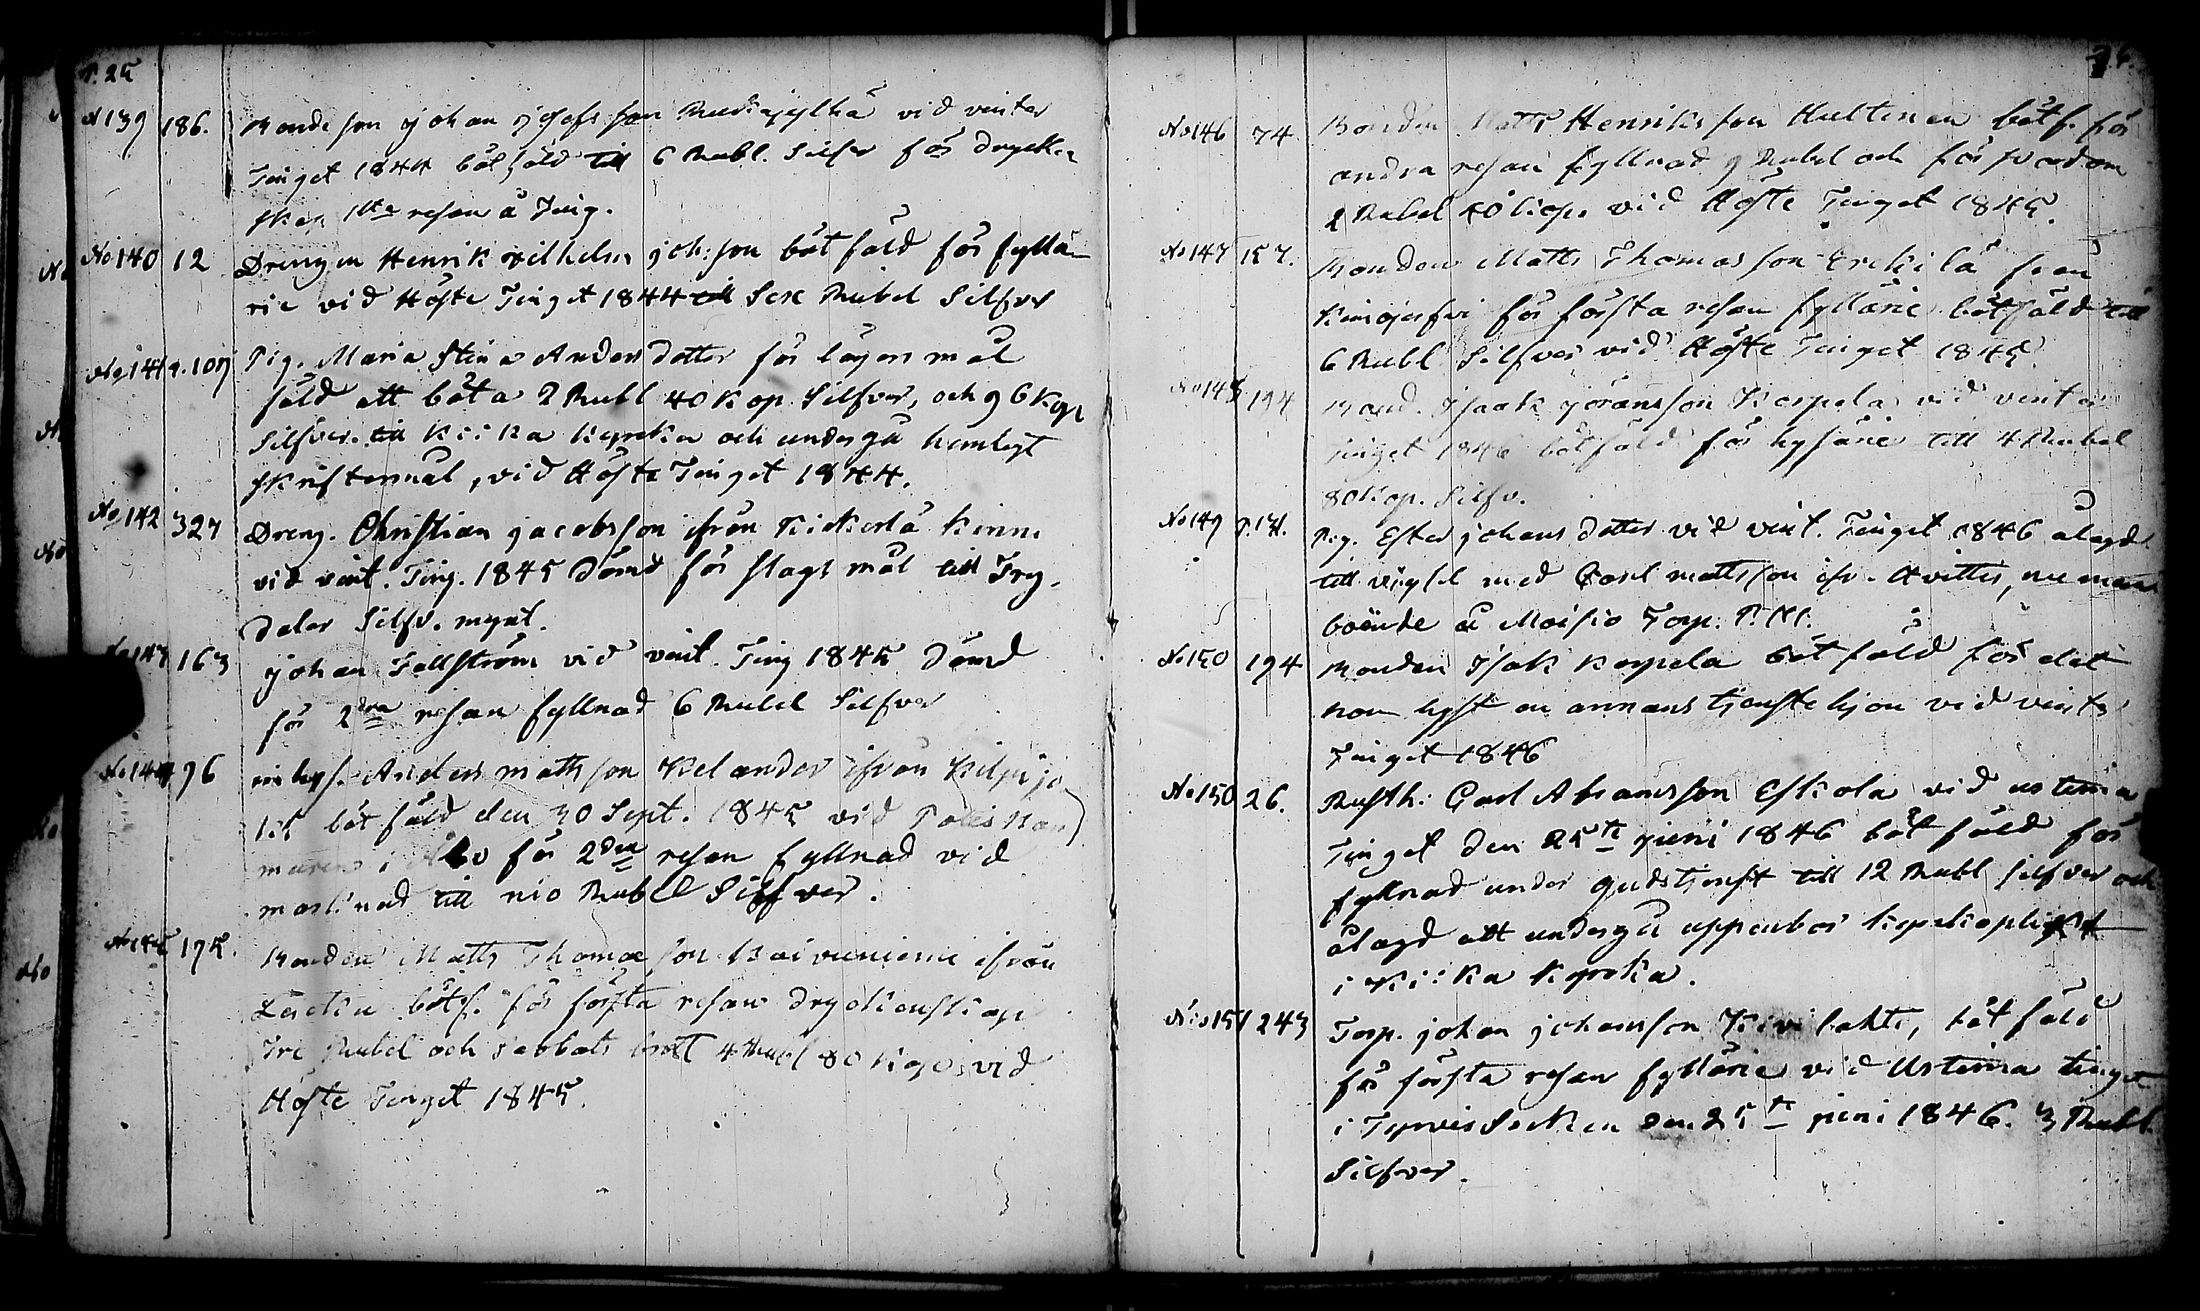 P. 25
N 139 186. Bondeson Johan Josefsson Rudixyltä vid vinter
Tinget 1844 bötfäld till 6 Rubl. Silfver för drycken
skap 1sta resan å Ting.
No 140 12 Drengen Henrik Vilhelm Joh:son bötfäld för fyllä
rie vid Höste Tinget 1844 till Sex Rubel Silfver
No 141 P. 107 Pig. Maria Stina Andersdotter för lägersmål
fäld att böta 2 Rubl 40 Kop. Silfver, och 96 Kop
Silfver till Kiika Kyrka och undergå hemligt
skriftermål, vid Höste Tinget 1844.
No 142 327 Dreng. Christian Jacobsson ifrån Kinni
vid vint. Ting. 1845 dömd för slagsmål till Try.
daler Silfv. mynt.
No 143 163 Johan Fällström vid vint. Ting 1845 dömd
för 2dra resan fyllnad 6 Rubel Silfver
No 144 96 inhys. Anders Mattsson Kelander ifrån Kilpijo
ki bötfäld den 30 Sept. 1845 vid Polis Kam
maren i Åbo för 2dra resan fyllnad vid
marknad till nio Rubel Silfver.
No 145 175. Bonden Matts Thomasson ifrån
bötf. för första resan dryckenskap
Tre Rubel och sabbats brott 4 Rubl 80 Kop. vid
Höste Tinget 1845.
26.
No 146 74. Bonden Matts Henriksson Hultinen bötf. för
andra resan fyllnad 9 Rubel och för svordom
2 Rubel 40 Kop. vid Höste Tinget 1845.
No 147 157. Bonden Matts Thomasson Erckilä från
för första resan fyllärie bötfäld till
6 Rubl Silfver vid Höste Tinget 1845.
No 148 194 Bond. Isaak Göransson Korpela vid vinter
Tinget 1846 bötfäld för hysärie till 4 Rubel
80 Kop. Silfv.
No 149 P. 131. Pig. Ester Johansdotter vid vint. Tinget 1846 ålagd
till vigsel med Carl Mattsson ifr. Hvittis, nu mera
boende å Moisio Torp.
No 150 194 Bonden Isak Korpela bötfäld för det
han hyst en annans tjenstehjon vid vinter
Tinget 1846
No 150 26. Rusth: Carl Abramsson Eskola vid urtima
Tinget den 25te juni 1846 bötfäld för
fyllnad under gudstjenst till 12 Rubl silfver och
ålagd att undergå uppenbar kyrkoplikt
i Kiika Kyrka.
No 151 243 Torp. Johan Johansson Kivilahti, bötfäld
för första resan fyllärie vid Urtima tinget
i Tyrvis Socken den 25te juni 1846. 3 Rubl.
Silfver.